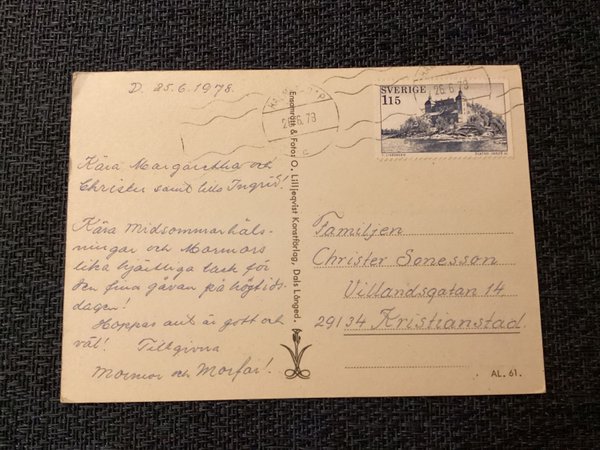 D. 25.6.1978.
Kära Margaretha och
Christer samt lilla Ingrid!
Kära Midsommarhäls-
ningar och Mormors
lika hjärtliga tack för
den fina gåvan på högtids-
dagen!
Hoppas allt är gott och
väl! Tillgivna
Mormor och Morfar!
Ensamrätt & Foto: O. Lilljeqvist Konstförlag, Dals Långed.
26.6.78
SVERIGE
115
Familjen
Christer Sonesson
Villandsgatan 14
29134 Kristianstad.
AL. 61.